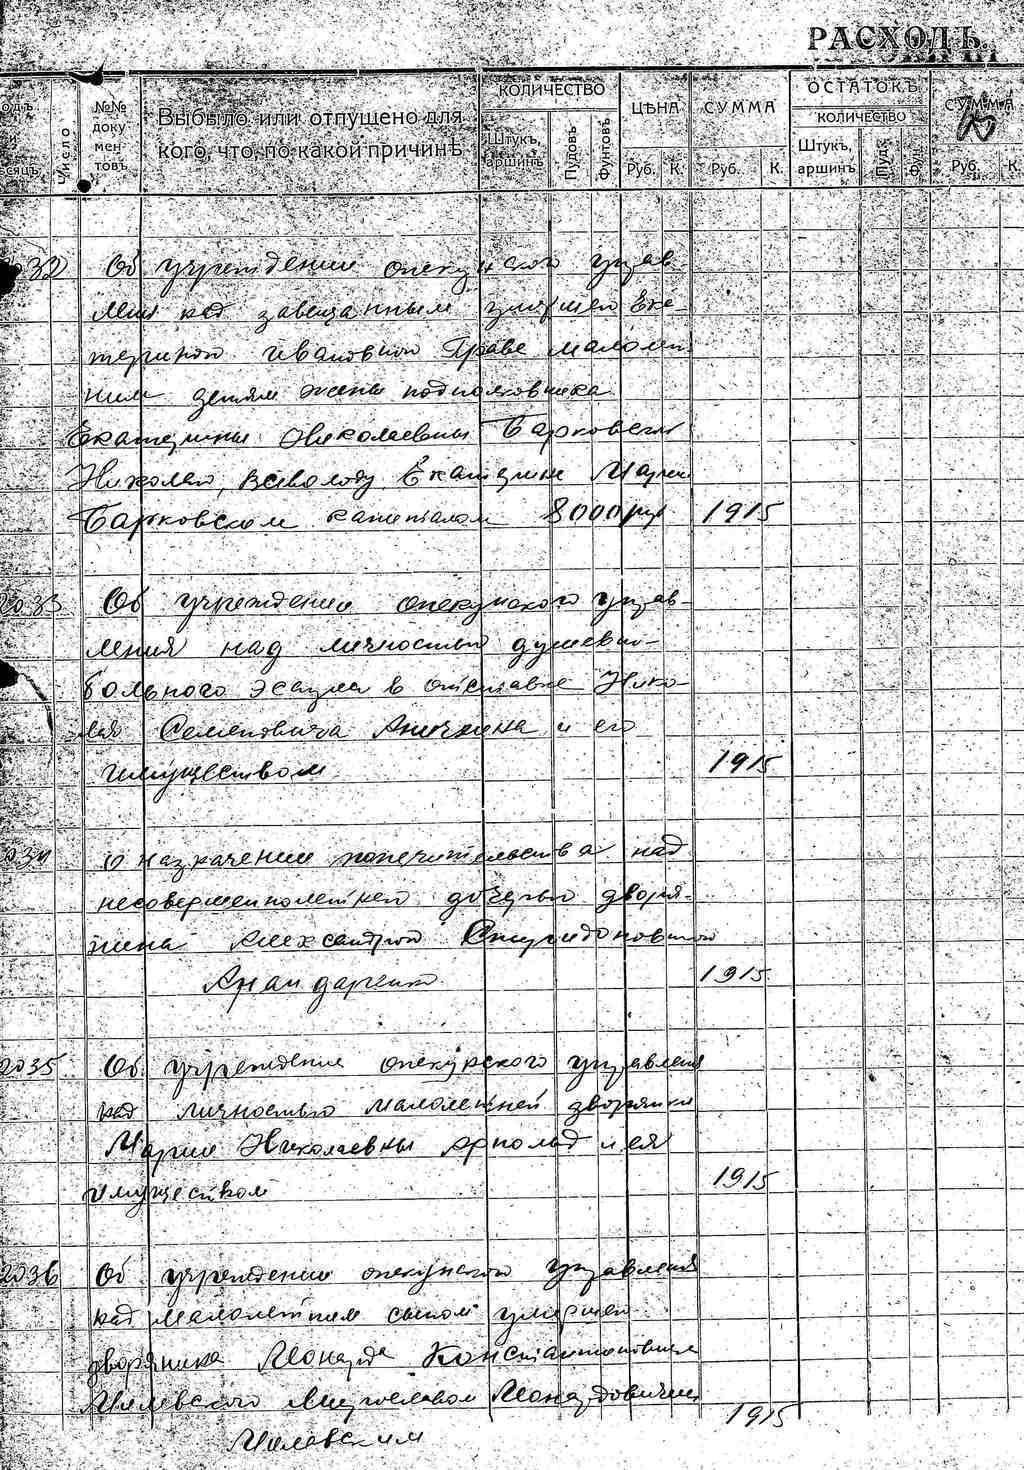 РАСХОДЪ.
Число
№№ доку мен товъ
Выбыло или отпущено для кого, что, по какой причинѣ
КОЛИЧЕСТВО
Штукъ, аршинъ
Пудовъ
Фунтовъ
ЦѢНА
Руб. К.
СУММА
Руб. К.
ОСТАТОКЪ
КОЛИЧЕСТВО
Штукъ, аршинъ
Пуд.
Фун.
СУММА
Руб. К.
32 Об учреждении опекунского управ-
ления над завещанным умершей Ека-
териной Ивановной малолет-
ним детям жены подполковника
Екатерины Николаевны Барковской
Николаю, Всеволоду, Екатерине Марии
Барковском капиталом 8000 руб 1915
2033 Об учреждении опекунского управ-
ления над личностью душевно-
больного эсаула в отставке Нико-
лая Семеновича Аничкина и его
имуществом 1915
034 О назначении попечительства над
несовершеннолетней дочерью дворя-
нина Александрой Спиридоновной
1915
2035 Об учреждении опекунского управления
над личностью малолетней дворянки
Марии Николаевны Арнольд и ея
имуществом 1915
2036 Об учреждении опекунского управления
над малолетним сыном умершего
дворянина Константиновича
Милевского
Милевским 1915